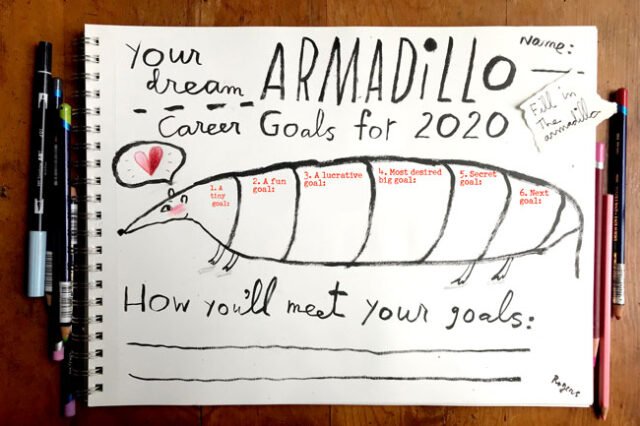 Your dream ARMADiLLO
Name:
Career Goals for 2020
Fill in
The
armadillo
1. A tiny goal:
2. A fun goal:
3. A lucrative goal:
4. Most desired big goal:
5. Secret goal:
6. Next goal:
How you'll meet your goals:
Rogers